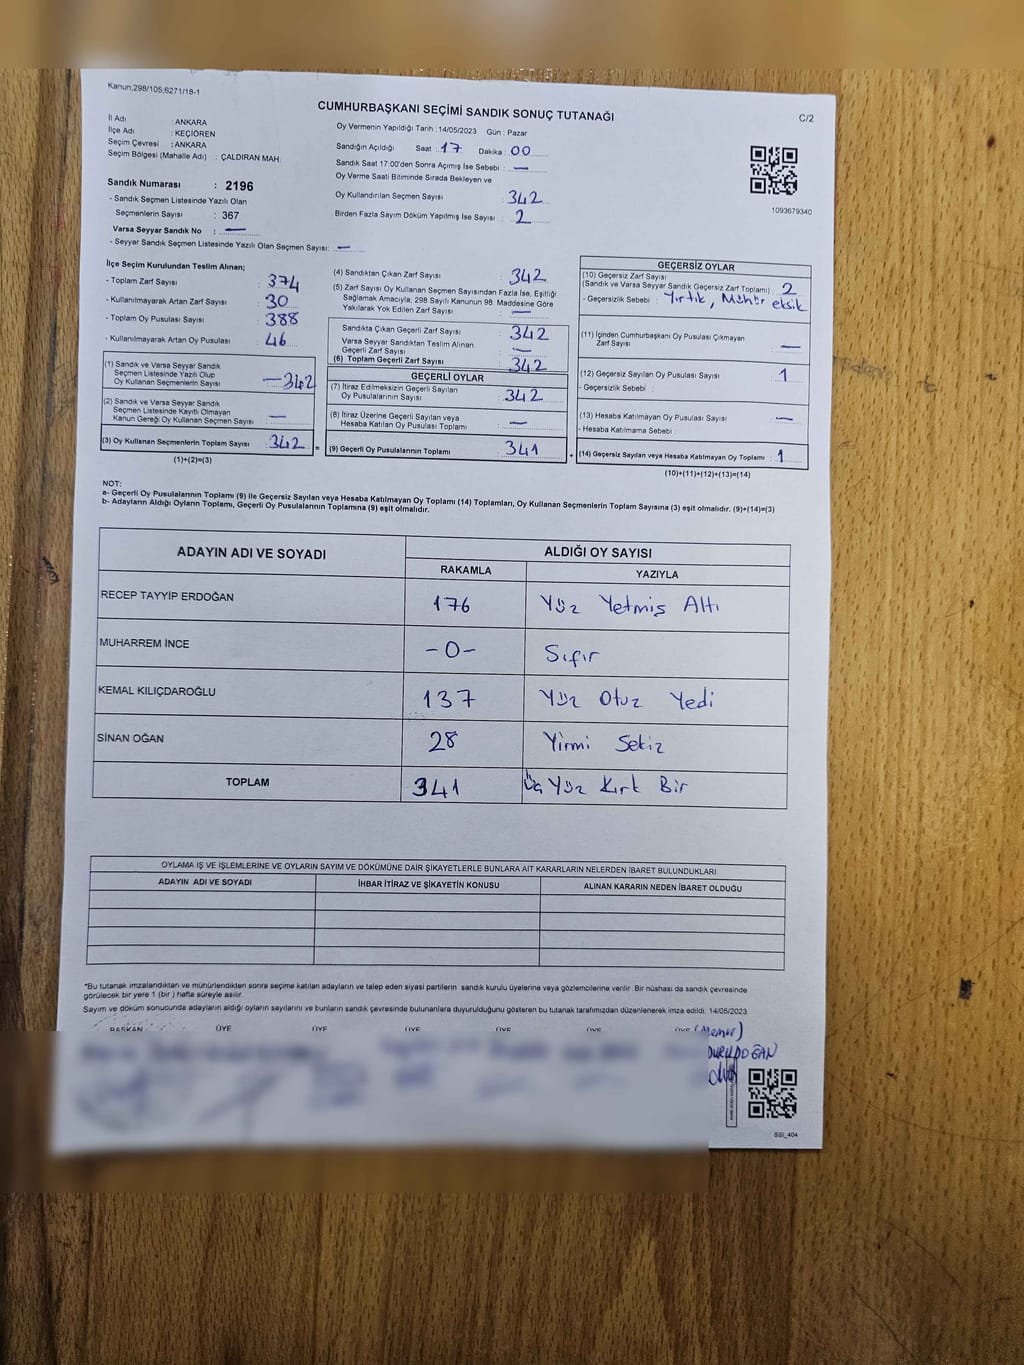 Kanun,298/105,6271/18-1
CUMHURBAŞKANI SEÇİMİ SANDIK SONUÇ TUTANAĞI
C/2
İl Adı : ANKARA
İlçe Adı : KEÇİÖREN
Seçim Çevresi : ANKARA
Seçim Bölgesi (Mahalle Adı) : ÇALDIRAN MAH.
Sandık Numarası : 2196
- Sandık Seçmen Listesinde Yazılı Olan
Seçmenlerin Sayısı : 367
Varsa Seyyar Sandık No : —
- Seyyar Sandık Seçmen Listesinde Yazılı Olan Seçmen Sayısı: —
Oy Vermenin Yapıldığı Tarih :14/05/2023 Gün : Pazar
Sandığın Açıldığı Saat : 17 Dakika : 00
Sandık Saat 17:00'den Sonra Açımış İse Sebebi : —
Oy Verme Saati Bitiminde Sırada Bekleyen ve
Oy Kullandırılan Seçmen Sayısı : 342
Birden Fazla Sayım Döküm Yapılmış İse Sayısı : 2
1093679340
İlçe Seçim Kurulundan Teslim Alınan;
- Toplam Zarf Sayısı : 374
- Kullanılmayarak Artan Zarf Sayısı : 30
- Toplam Oy Pusulası Sayısı : 388
- Kullanılmayarak Artan Oy Pusulası : 46
(1) Sandık ve Varsa Seyyar Sandık
Seçmen Listesinde Yazılı Olup
Oy Kullanan Seçmenlerin Sayısı : —342
(2) Sandık ve Varsa Seyyar Sandık
Seçmen Listesinde Kayıtlı Olmayan
Kanun Gereği Oy Kullanan Seçmen Sayısı : —
(3) Oy Kullanan Seçmenlerin Toplam Sayısı : 342 =
(1)+(2)=(3)
(4) Sandıktan Çıkan Zarf Sayısı : 342
(5) Zarf Sayısı Oy Kullanan Seçmen Sayısından Fazla İse, Eşitliği
Sağlamak Amacıyla; 298 Sayılı Kanunun 98. Maddesine Göre
Yakılarak Yok Edilen Zarf Sayısı : —
Sandıkta Çıkan Geçerli Zarf Sayısı : 342
Varsa Seyyar Sandıktan Teslim Alınan
Geçerli Zarf Sayısı : —
(6) Toplam Geçerli Zarf Sayısı : 342
GEÇERLİ OYLAR
(7) İtiraz Edilmeksizin Geçerli Sayılan
Oy Pusulalarının Sayısı : 342
(8) İtiraz Üzerine Geçerli Sayılan veya
Hesaba Katılan Oy Pusulası Toplamı : —
(9) Geçerli Oy Pusulalarının Toplamı : 341 +
GEÇERSİZ OYLAR
(10) Geçersiz Zarf Sayısı
(Sandık ve Varsa Seyyar Sandık Geçersiz Zarf Toplamı) : 2
- Geçersizlik Sebebi : Yırtık, Mühür eksik
(11) İçinden Cumhurbaşkanı Oy Pusulası Çıkmayan
Zarf Sayısı : —
(12) Geçersiz Sayılan Oy Pusulası Sayısı : 1
- Geçersizlik Sebebi :
(13) Hesaba Katılmayan Oy Pusulası Sayısı : —
- Hesaba Katılmama Sebebi :
(14) Geçersiz Sayılan veya Hesaba Katılmayan Oy Toplamı : 1
(10)+(11)+(12)+(13)=(14)
NOT:
a- Geçerli Oy Pusulalarının Toplamı (9) ile Geçersiz Sayılan veya Hesaba Katılmayan Oy Toplamı (14) Toplamları, Oy Kullanan Seçmenlerin Toplam Sayısına (3) eşit olmalıdır. (9)+(14)=(3)
b- Adayların Aldığı Oyların Toplamı, Geçerli Oy Pusulalarının Toplamına (9) eşit olmalıdır.
ADAYIN ADI VE SOYADI
ALDIĞI OY SAYISI
RAKAMLA YAZIYLA
RECEP TAYYİP ERDOĞAN 176 Yüz Yetmiş Altı
MUHARREM İNCE -0- Sıfır
KEMAL KILIÇDAROĞLU 137 Yüz Otuz Yedi
SİNAN OĞAN 28 Yirmi Sekiz
TOPLAM 341 Üç Yüz Kırk Bir
OYLAMA İŞ VE İŞLEMLERİNE VE OYLARIN SAYIM VE DÖKÜMÜNE DAİR ŞİKAYETLERLE BUNLARA AİT KARARLARIN NELERDEN İBARET BULUNDUKLARI
ADAYIN ADI VE SOYADI İHBAR İTİRAZ VE ŞİKAYETİN KONUSU ALINAN KARARIN NEDEN İBARET OLDUĞU
*Bu tutanak imzalandıktan ve mühürlendikten sonra seçime katılan adayların ve talep eden siyasi partilerin sandık kurulu üyelerine veya gözlemcilerine verilir. Bir nüshası da sandık çevresinde
görülecek bir yere 1 (bir ) hafta süreyle asılır.
Sayım ve döküm sonucunda adayların aldığı oyların sayılarını ve bunların sandık çevresinde bulunanlara duyurulduğunu gösteren bu tutanak tarafımızdan düzenlenerek imza edildi. 14/05/2023
BAŞKAN ÜYE ÜYE ÜYE ÜYE ÜYE ÜYE (Memur)
SSI_404